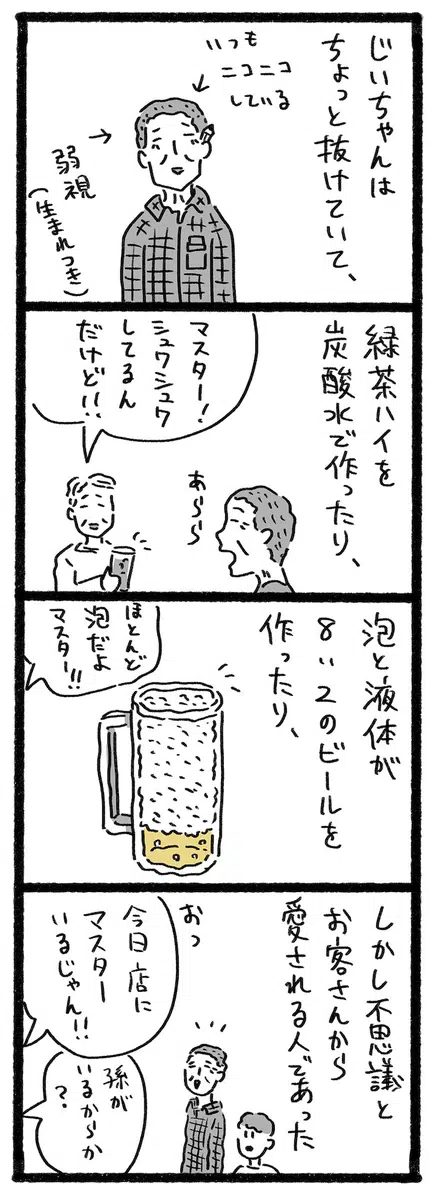 じいちゃんは
ちょっと抜けていて、
いつも
ニコニコ
している
弱視
(生まれつき)
緑茶ハイを
炭酸水で作ったり、
マスター!
シュワシュワ
してるん
だけど!!
あらら
泡と液体が
8:2のビールを
作ったり、
ほとんど
泡だよ
マスター!!
しかし不思議と
お客さんから
愛される人であった
おっ
今日店に
マスター
いるじゃん!!
孫が
いるからか
?